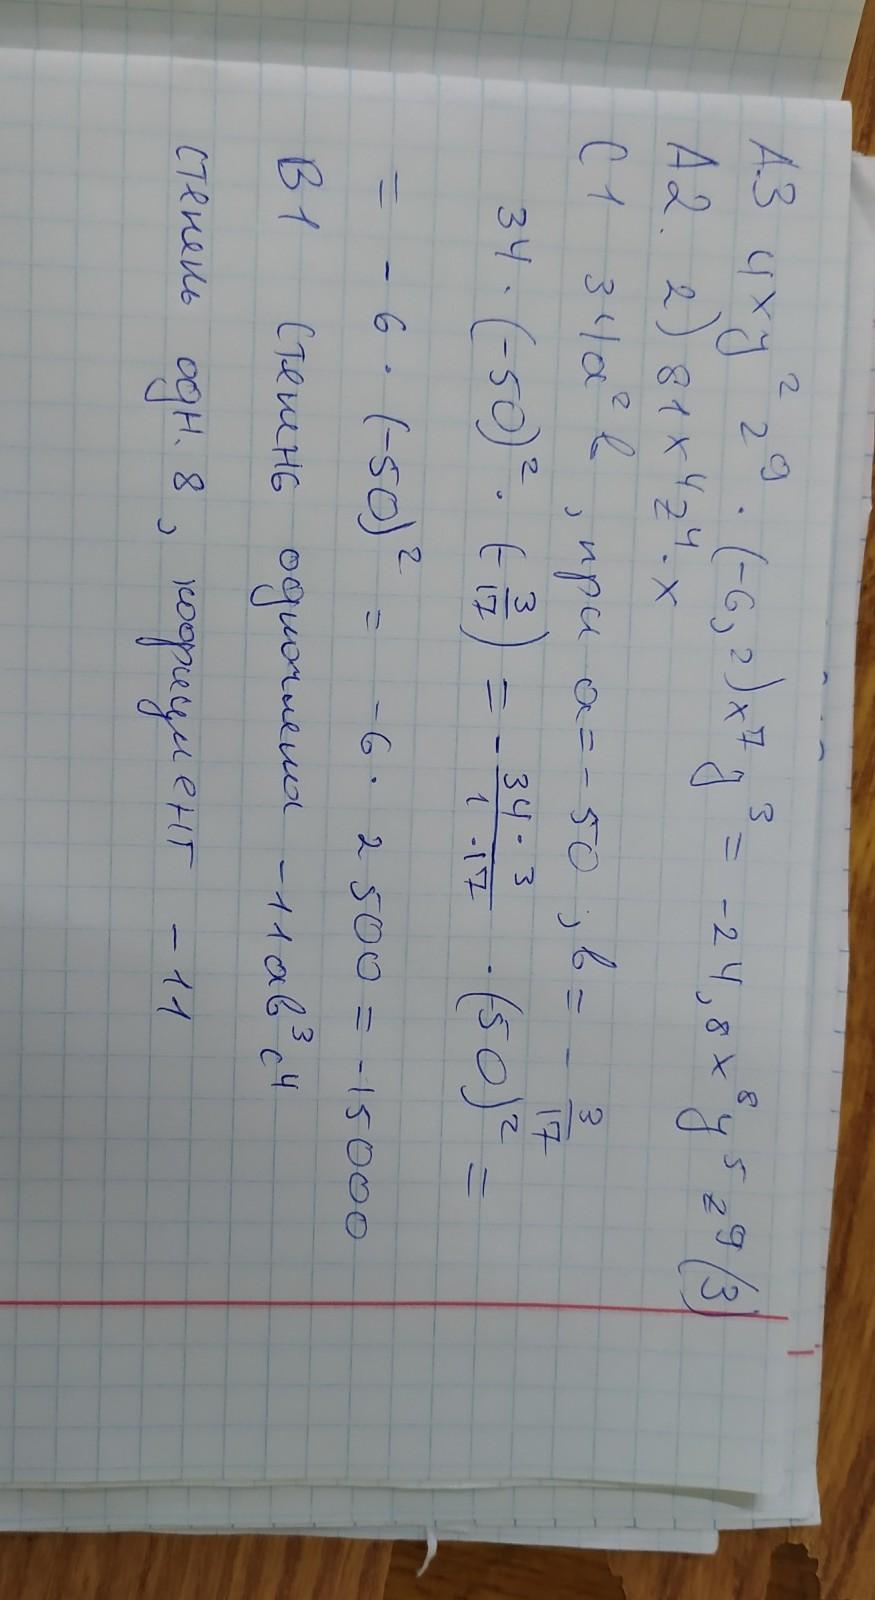 А3 4xy² z⁹ · (-6,2)x⁷y³ = -24,8x⁸y⁵z⁹ (3)
А2. 2) 81x⁴z⁴·x
С1 34a²b, при a = -50, b = - 3/17
34 · (-50)² · (- 3/17) = - 34·3/1·17 · (50)² =
= - 6 · (-50)² = -6 · 2500 = -15000
В1 Степень одночлена -11ab³c⁴
степень одн. 8, коэфициент -11